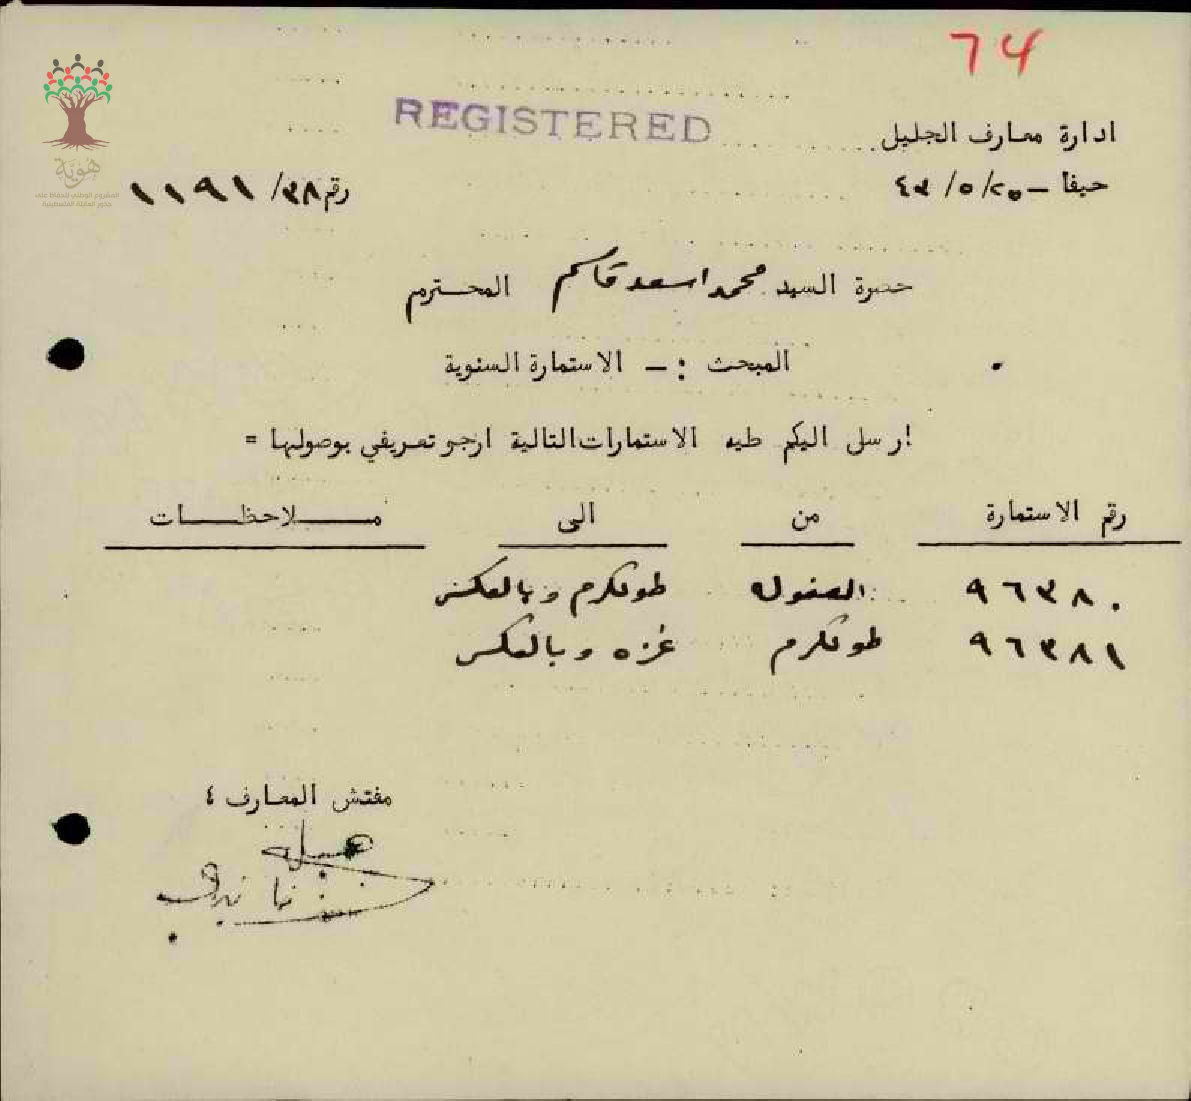 74
REGISTERED
ادارة معارف الجليل
حيفا – ٢٥/٥/٤٣
رقم ٣٨/١١٩١
هوية
المشروع الوطني للحفاظ على
جذور العائلة الفلسطينية
حضرة السيد محمد اسعد قاسم المحترم
المبحث :– الاستمارة السنوية
ارسل اليكم طيه الاستمارات التالية ارجو تعريفي بوصولها =
رقم الاستمارة من الى ملاحظات
٩٦٣٨٠ العفوله طولكرم وبالعكس
٩٦٣٨١ طولكرم غزه وبالعكس
مفتش المعارف ٤